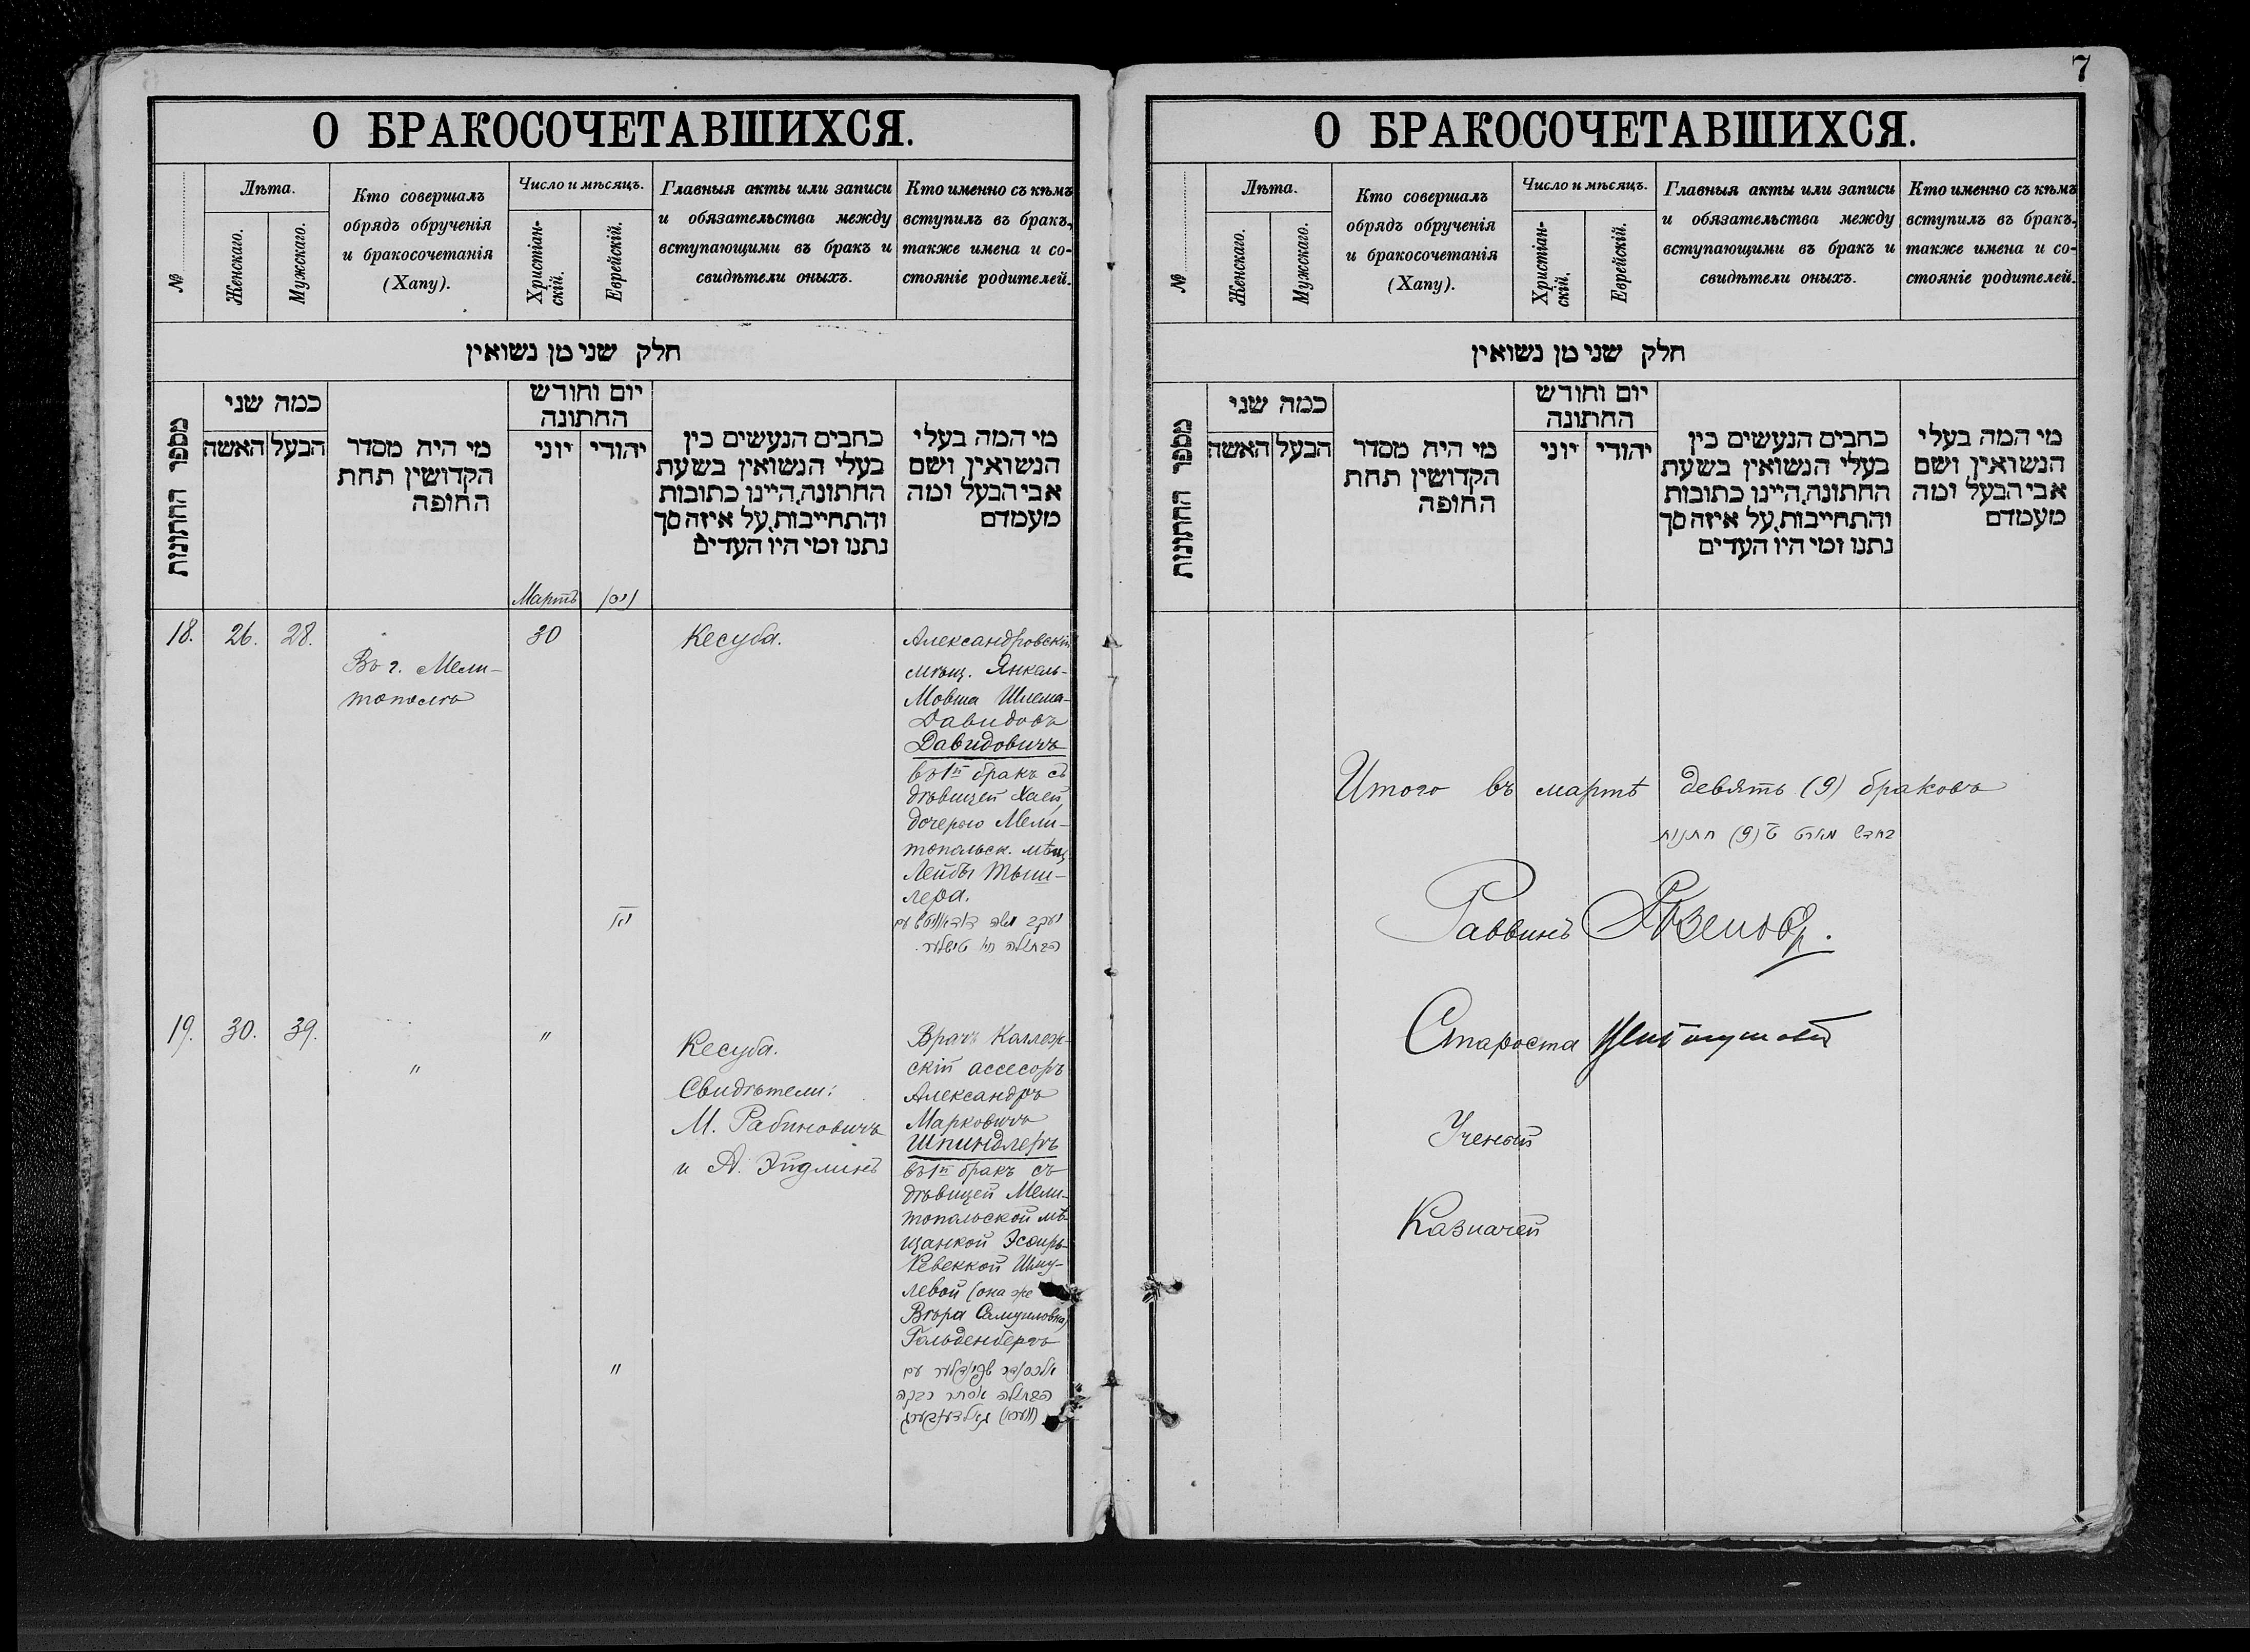 7
О БРАКОСОЧЕТАВШИХСЯ.
№
Лѣта.
Женскаго.
Мужскаго.
Кто совершалъ
обрядъ обрученія
и бракосочетанія
(Хапу).
Число и мѣсяцъ.
Христіан-
скій.
Еврейскій.
Главныя акты или записи
и обязательства между
вступающими въ бракъ и
свидѣтели оныхъ.
Кто именно съ кѣмъ
вступилъ въ бракъ,
также имена и со-
стояніе родителей.
חלק שני מן נשואין
מספר החתונות
כמה שני
האשה
הבעל
מי היה מסדר
הקדושין תחת
החופה
יום וחודש
החתונה
יוני
יהודי
כתבים הנעשים בין
בעלי הנשואין בשעת
החתונה, היינו כתובות
והתחייבות, על איזה סך
נתנו ומי היו העדים
מי המה בעלי
הנשואין ושם
אבי הבעל ומה
מעמדם
Мартъ
ניסן
18.
26.
28.
Въ г. Мели-
тополѣ
30
יח
Кесуба.
Александровскій
мѣщ. Янкель-
Мовша Шлема-
Давидовъ
Давидовичъ
въ 1й бракъ съ
дѣвицей Хаей,
дочерью Мели-
топольск. мѣщ.
Лейбы Тыш-
лера.
יעקב משה דודאוויטש עם
הבתולה חי' טישלער.
19.
30.
39.
"
"
"
Кесуба.
Свидѣтели:
М. Рабиновичъ
и А. Эйдлинъ
Врачъ Коллеж-
скій ассесоръ
Александръ
Марковичъ
Шпиндлеръ
въ 1й бракъ съ
дѣвицей Мели-
топольской мѣ-
щанкой Эсѳирь-
Ревеккой Шму-
левой (она же
Вѣра Самуиловна)
Гольденбергъ
אלכסנדר שפינדלער עם
הבתולה אסתר רבקה
(ווערא) גאלדענבערג
О БРАКОСОЧЕТАВШИХСЯ.
№
Лѣта.
Женскаго.
Мужскаго.
Кто совершалъ
обрядъ обрученія
и бракосочетанія
(Хапу).
Число и мѣсяцъ.
Христіан-
скій.
Еврейскій.
Главныя акты или записи
и обязательства между
вступающими въ бракъ и
свидѣтели оныхъ.
Кто именно съ кѣмъ
вступилъ въ бракъ,
также имена и со-
стояніе родителей.
חלק שני מן נשואין
מספר החתונות
כמה שני
האשה
הבעל
מי היה מסדר
הקדושין תחת
החופה
יום וחודש
החתונה
יוני
יהודי
כתבים הנעשים בין
בעלי הנשואין בשעת
החתונה, היינו כתובות
והתחייבות, על איזה סך
נתנו ומי היו העדים
מי המה בעלי
הנשואין ושם
אבי הבעל ומה
מעמדם
Итого въ мартѣ девять (9) браковъ
בחדש מארט ט (9) חתונות
Раввинъ
Староста
Ученый
Казначей